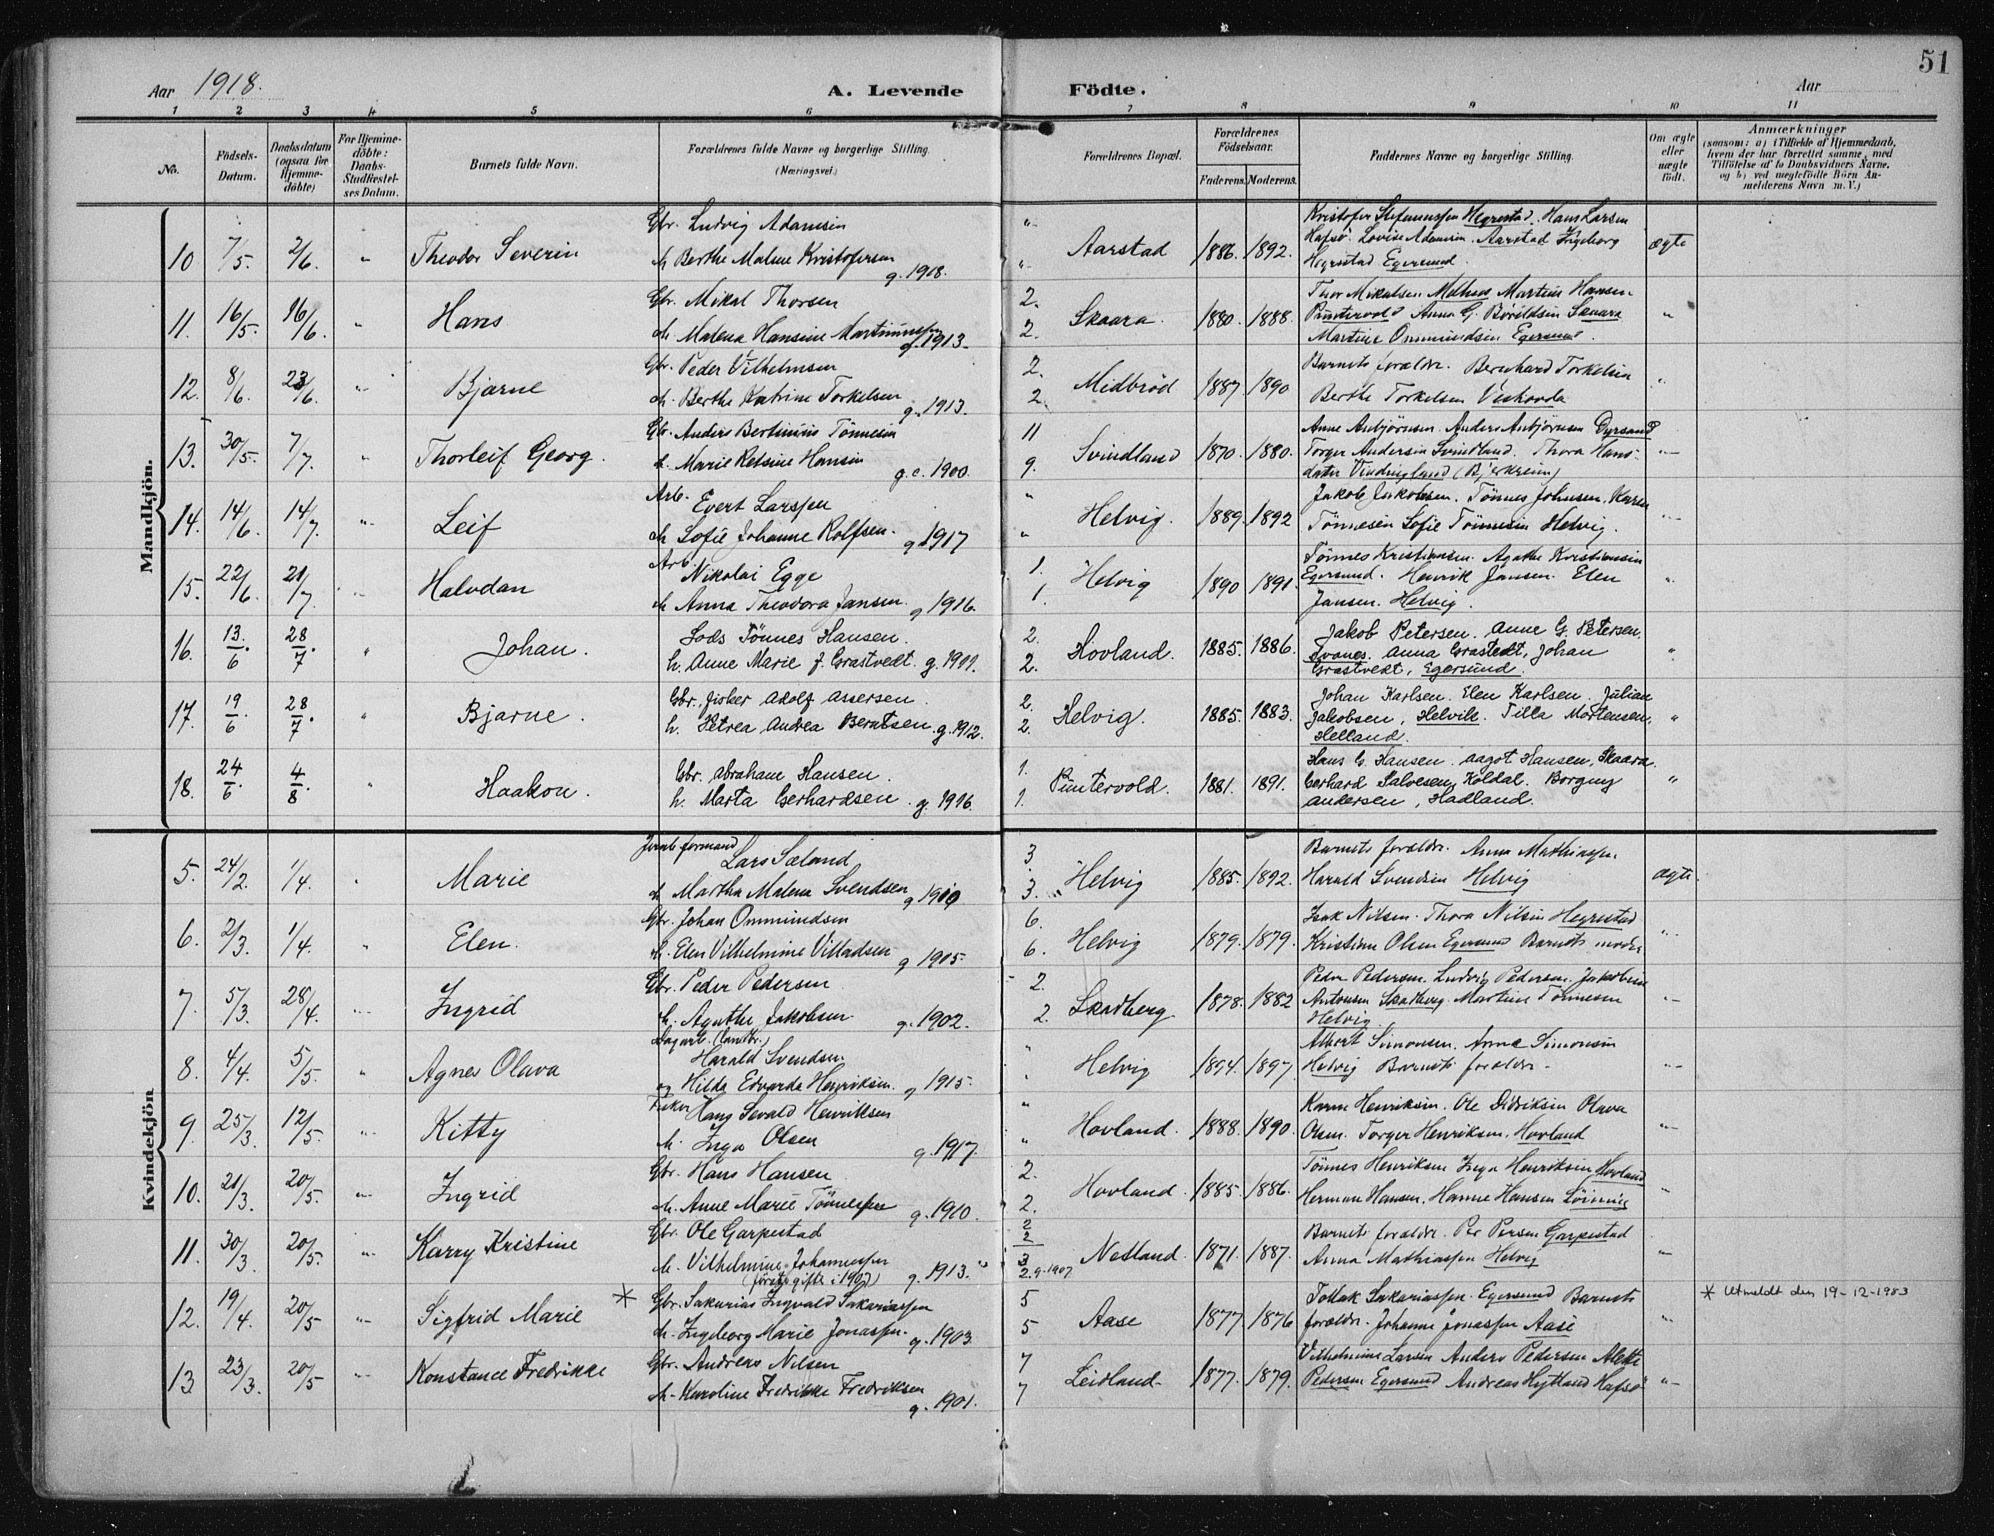 51
Aar 1918. A. Levende Födte. Aar
1 2 3 4 5 6 7 8 9 10 11
No. Födsels-Datum. Daabsdatum (ogsaa for Hjemme-döbte) For Hjemme-döbte: Daabs-Stadfæstel-ses Datum. Barnets fulde Navn. Forældrenes fulde Navne og borgerlige Stilling. (Næringsvei.) Forældrenes Bopæl. Forældrenes Födselsaar. Faderens. Moderens. Faddernes Navne og borgerlige Stilling. Om ægte eller uægte födt. Anmærkninger (saasom: a) i Tilfælde af Hjemmedaab, hvem der har forrettet samme, med Tilföielse af to Daabsvidners Navne, og b) ved uegtefödte Börn An-melderens Navn m. V.)
Mandkjön.
Gbr. Ludvig Adamsen " Kristofer Stefanussen Hegrestad. Hans Larsen
10 7/5. 2/6. " Theodor Severin Aarstad 1886. 1892. Hafsö. Lovise Adamsen. Aarstad Ingeborg ægte
h. Berthe Malene Kristofersen g. 1918. " Hegrestad Egersund.
Gbr. Mikal Thorsen 2. Thor Mikalsen Melhus Martin Hansen
11. 16/5. 16/6. " Hans Skaara. 1880. 1888. Puntervold Anna G. Bövildsen Skaara "
h. Malena Hansine Martinussen g. 1913. 2. Martine Ommundsen Egersund.
Gbr. Peder Vilhelmsen 2. Barnets forældr. Bernhard Torkelsen
12. 8/6. 23/6. " Bjarne Midbröd 1887. 1890 "
h. Berthe Katrine Torkelsen g. 1913. 2. Berthe Torkelsen
Gbr. Anders Bertinius Tönnesen 11 Anne Anbjörnsen. Anders Anbjörnsen Dyrsand
13. 30/5. 7/7. " Thorleif Georg. Svindland 1870. 1880. Torger Andersen Svindland. Thora Hans- "
h. Marie Retsine Hansen g. c. 1900. 9. dater Vindringland (Bjerkreim)
Arb. Evert Larssen " Jakob Jakobsen. Tönnes Johnsen. Karen
14. 14/6. 14/7. " Leif Helvig. 1889. 1892 "
h. Sofie Johanne Rolfsen. g. 1917 " Tönnesen Sofie Tönnesen Helvig.
Arb. Nikolai Egge 1. Tönnes Kristiansen. Agathe Kristiansen
15. 22/6. 21/7. " Halvdan Helvig 1890 1891. Egersund. Henrik Jansen. Elen "
h. Anna Theodora Jansen. g 1916. 1. Jansen. Helvig.
Lods Tönnes Hansen. 2. Jakob Petersen. Anne G. Petersen.
16. 13/6. 28/7. " Johan. Hovland. 1885. 1886. Svanes. Anna Grastedt, Johan "
h. Anne Marie f. Grastvedt. g. 1901. 2. Grastvedt, Egersund.
Gbr. fisker Adolf Assersen. 2. Johan Karlsen. Elen Karlsen. Julian
17. 19/6. 28/7. " Bjarne. Helvig. 1885. 1883. Jakobsen, Helvik. Tilla Mortensen, "
h. Petrea Andrea Berntsen. g. 1912. 2. Helland.
Gbr. Abraham Hansen. 1. Hans G. Hansen. Aagot Hansen, Skaara.
18. 24/6. 4/8. " Haakon. Puntervold. 1881. 1891. Gerhard Salvesen, Koldal. Borgny "
h. Marta Gerhardsen. g. 1916. 1. Andersen, Hadland.
Kvindekjön
formand Lars Sæland 3 Barnets forældr. Anna Mathiassen.
5. 24/2. 1/4. " Marie Helvig 1885. 1892. ægte.
h. Martha Malene Svendsen g 1910 3. Harald Svendsen Helvig
Gbr. Johan Ommundsen 6. Isak Nilsen. Thora Nilsen Hegrestad
6. 2/3. 1/4. " Elen. Helvig 1879. 1879. "
h. Elen Vilhelmine Villadsen g 1905. 6. Kristine Olsen Egersund Barnets moder
Gbr. Peder Pedersen 2. Peder Pedersen. Ludvig Pedersen. Jakobine
7. 5/3. 28/4. " Ingrid Skadberg 1878. 1882 Antonsen Skadberg. Martine Tönnesen "
h. Agathe Jakobsen g. 1902. 2. Helvig
Dagarb. (landbr.) Harald Svendsen " Albert Simonsen. Anne Simonsen
8. 4/4. 5/5. " Agnes Olava Helvig 1894. 1897. "
og Hilda Edvarda Henriksen. g 1915. " Helvig Barnets forældr.
Fisker Hans Sevald Henriksen " Karen Henriksen. Ole Didriksen Olava
9. 25/3. 12/5. " Kitty Hovland. 1888. 1890. "
h. Inga Olsen g. 1917. " Olsen. Torger Henriksen. Hovland
Gbr. Hans Hansen 2. Tönnes Henriksen Inga Henriksen Hovland
10. 21/3. 20/5. " Ingrid Hovland. 1885. 1886. "
h. Anne Marie Tönnessen g. 1910. 2. Herman Hansen. Hanne Hansen
Gbr. Ole Garpestad 2/2 Barnets forældr. Per Persen Garpestad
11. 30/3. 20/5. " Karry Kristine Netland. 1871. 1887. "
h. Vilhelmine Johannessen g. 1913. 3 Anna Mathiassen Helvig
(förste gifte i 1907) 2. g. 1907
Gbr. Sakarias Ingvald Sakariassen 5 Tollak Sakariassen. Egersund Barnets * Utmeldt den 19-12-1983
12. 19/4. 20/5 " Sigfrid Marie * Aase 1877. 1876 "
h. Ingeborg Marie Jonassen. g. 1903. 5 forældr. Johanne Jonassen Aase
Gbr. Andreas Nilsen 7 Vilhelmine Larsen Anders Pedersen Alette
13 23/3. 20/5 " Konstance Fredrikke Leidland 1877. 1879. Pedersen Egersund Andreas Hytland Hafsö "
h. Karoline Fredrikke Fredriksen g. 1901. 7